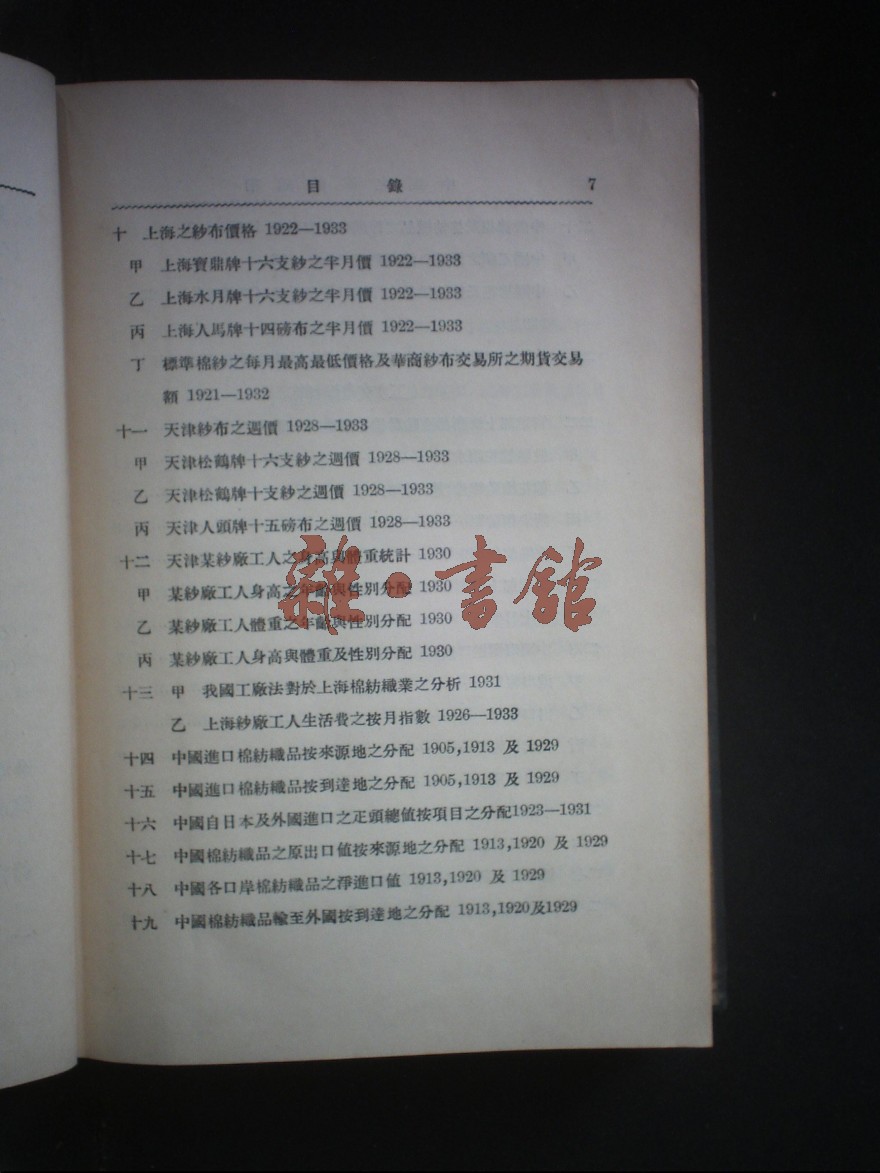 目 錄 7
十 上海之紗布價格 1922—1933
甲 上海寶鼎牌十六支紗之半月價 1922—1933
乙 上海水月牌十六支紗之半月價 1922—1933
丙 上海人馬牌十四磅布之半月價 1922—1933
丁 標準棉紗之每月最高最低價格及華商紗布交易所之期貨交易
額 1921—1932
十一 天津紗布之週價 1928—1933
甲 天津松鶴牌十六支紗之週價 1928—1933
乙 天津松鶴牌十支紗之週價 1928—1933
丙 天津人頭牌十五磅布之週價 1928—1933
十二 天津某紗廠工人之身高與體重統計 1930
甲 某紗廠工人身高之年齡與性別分配 1930
乙 某紗廠工人體重之年齡與性別分配 1930
丙 某紗廠工人身高與體重及性別分配 1930
十三 甲 我國工廠法對於上海棉紡織業之分析 1931
乙 上海紗廠工人生活費之按月指數 1926—1933
十四 中國進口棉紡織品按來源地之分配 1905,1913 及 1929
十五 中國進口棉紡織品按到達地之分配 1905,1913 及 1929
十六 中國自日本及外國進口之疋頭總值按項目之分配1923—1931
十七 中國棉紡織品之原出口值按來源地之分配 1913,1920 及 1929
十八 中國各口岸棉紡織品之淨進口值 1913,1920 及 1929
十九 中國棉紡織品輸至外國按到達地之分配 1913,1920及1929
雜·書館